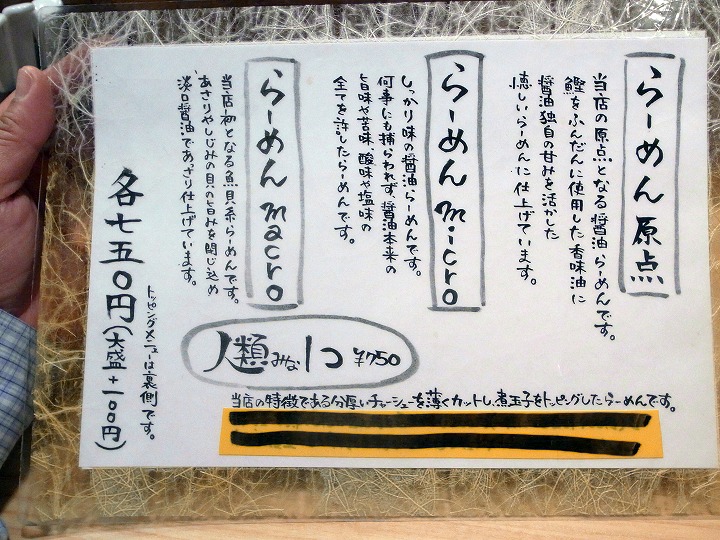 らーめん原点
当店の原点となる醤油らーめんです。
鰹をふんだんに使用した香味油に
醤油独自の甘みを活かした
懐しいらーめんに仕上げています。
らーめんmicro
しっかり味の醤油らーめんです。
何事にも捕らわれず、醤油本来の
旨味や苦味、酸味や塩味の
全てを許したらーめんです。
らーめんmacro
当店初となる魚貝系らーめんです。
あさりやしじみの貝の旨みを閉じ込め
淡口醤油であっさり仕上げています。
各七五〇円(大盛+一〇〇円)
トッピングメニューは裏側です。
人類みな1コ ¥750
当店の特徴である分厚いチャーシューを薄くカットし、煮玉子をトッピングしたらーめんです。